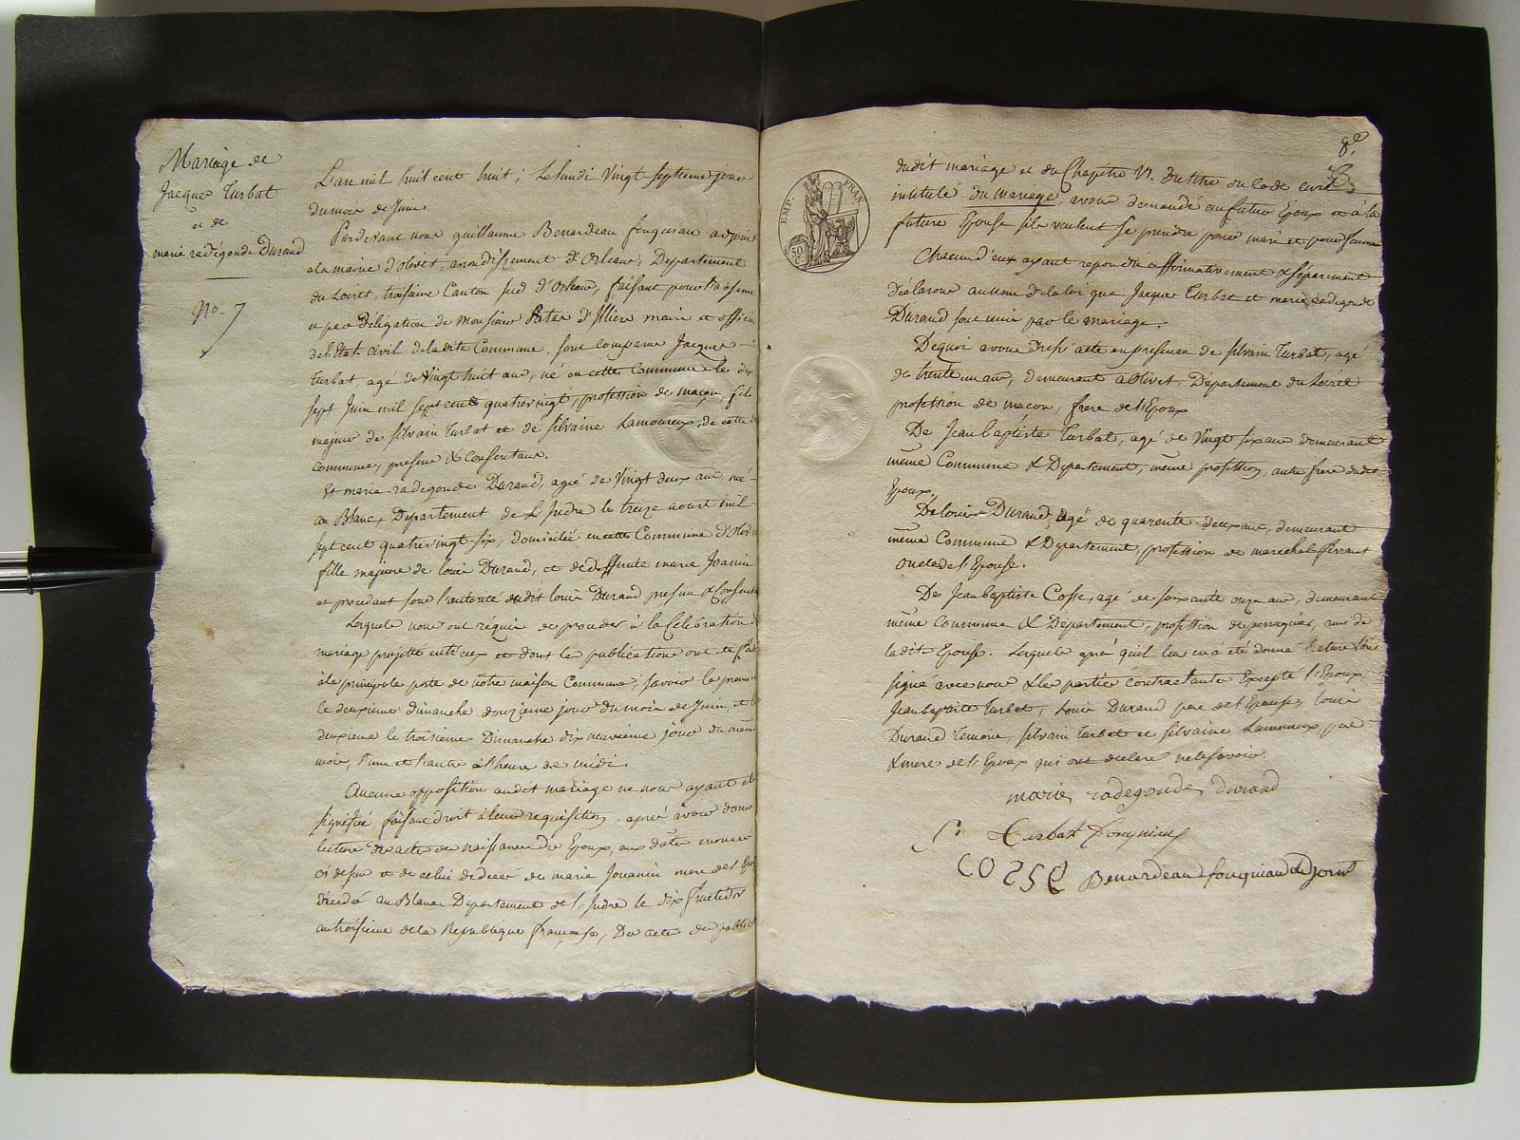 Mariage de
Jacque Turbat
et de
marie radégonde Durand
No. 7
L'an mil huit cent huit; Le lundi Vingt septieme jour
du mois de Juin
Pardevant nous guillaume Benardeau fouquiau adjoint
a la mairie d'olivet, arondissement d'Orleans, Departement
du Loiret, troisieme Canton sud d'Orleans, faisant pour l'absence
et par Deligation de Monsieur d'Illiers maire et officier
de l'Etat Civil de la dite Commune, sont comparus Jacque
turbat, agé de Vingt huit ans, né en cette Commune le dix
sept Juin mil sept cent quatrevingt, profession de maçon, fils
majeur de silvain turbat et de silvaine Lamoureux, de cette
Commune, presens & Consentans.
Et marie radegonde Durand, agée de Vingt deux ans, née
au Blanc, Departement de L'Indre le treize aoust mil
sept cent quatrevingt six, domicilié en cette Commune d'Olivet
fille majeure de louis Durand, et de deffunte marie Joanin
et procedant sous l'autorité dudit louis Durand present & Consentant
Lesquels nous ont requis de proceder à la Célébration du
mariage projetté entr'eux et dont les publications ont été faites
à la principale porte de notre maison Commune, savoir la premiere
le deuxieme dimanche douzieme jour du mois de Juin, et la
deuxieme le troisieme Dimanche dix neuvieme jour du même
mois, l'une et l'autre à l'heure de midi.
Aucune opposition audit mariage ne nous ayant été
signifiée, faisant droit à leur requisition, après avoir donné
lecture des actes de naissance des Epoux, aux dates énoncées
ci dessus et de celui de deces de marie Jouanin mere de l'Epouse
décedée au Blanc Departement de l'Indre le dix fructidor
an troisieme de la Republique française, Des actes de publication
8e.
EMP. FRAN.
50
dudit mariage et du Chapitre VI. du titre du Code Civil
intitulé du mariage, avons demandé au futur Epoux et à la
future Epouse s'ils veulent se prendre pour mari et pour femme
Chacun d'eux ayant repondu affirmativement & séparément
déclarons au nom de la loi que Jacque Turbat et marie radegonde
Durand sont unis par le mariage.
De quoi avons dressé acte en presence de silvain turbat, agé
de trente un ans, demeurant à Olivet, Département du Loiret
profession de macon, frere de l'Epoux
De Jean baptiste turbat, agé de Vingt six ans demeurant
même Commune & Departement, même profession, autre frere dudit
Epoux.
De louis Durand, agé de quarante deux ans, demeurant
même Commune & Departement, profession de marechal ferrant
oncle de l'Epouse.
De Jean baptiste Cosse, agé de soixante onze ans, demeurant
même Commune & Departement, profession de perruquier, ami de
ladite Epouse. Lesquels après qu'il leur en a été donné lecture l'ont
signé avec nous & les parties contractantes Excepté l'Epoux,
Jean baptiste turbat, Louis Durand pere de l'Epouse, louis
Durand temoin, silvain turbat et silvaine Lamoureux, pere
& mere de l'Epoux qui ont declaré ne le savoir.
marie radegonde durand
S. Turbat
COSSE Benardeau fouquiau adjoint